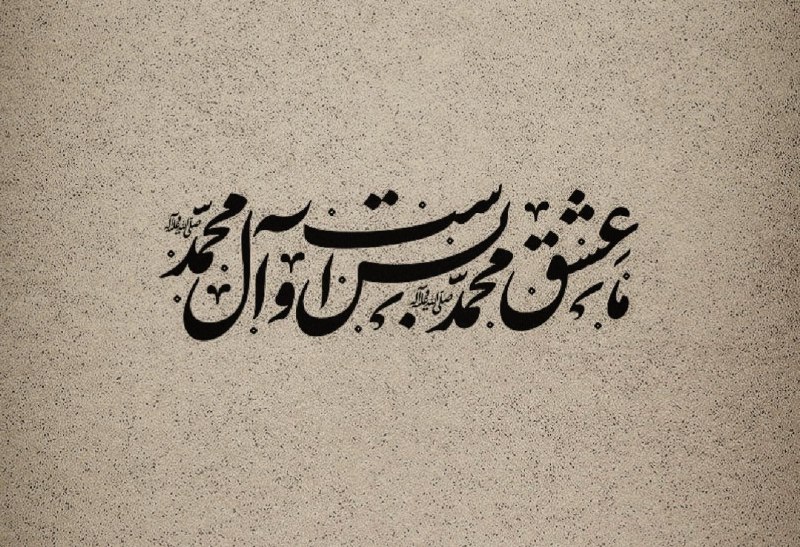 ما عِشقِ محمّد صلی الله علیه و آله بس است و آل محمّد صلی الله علیه و آله